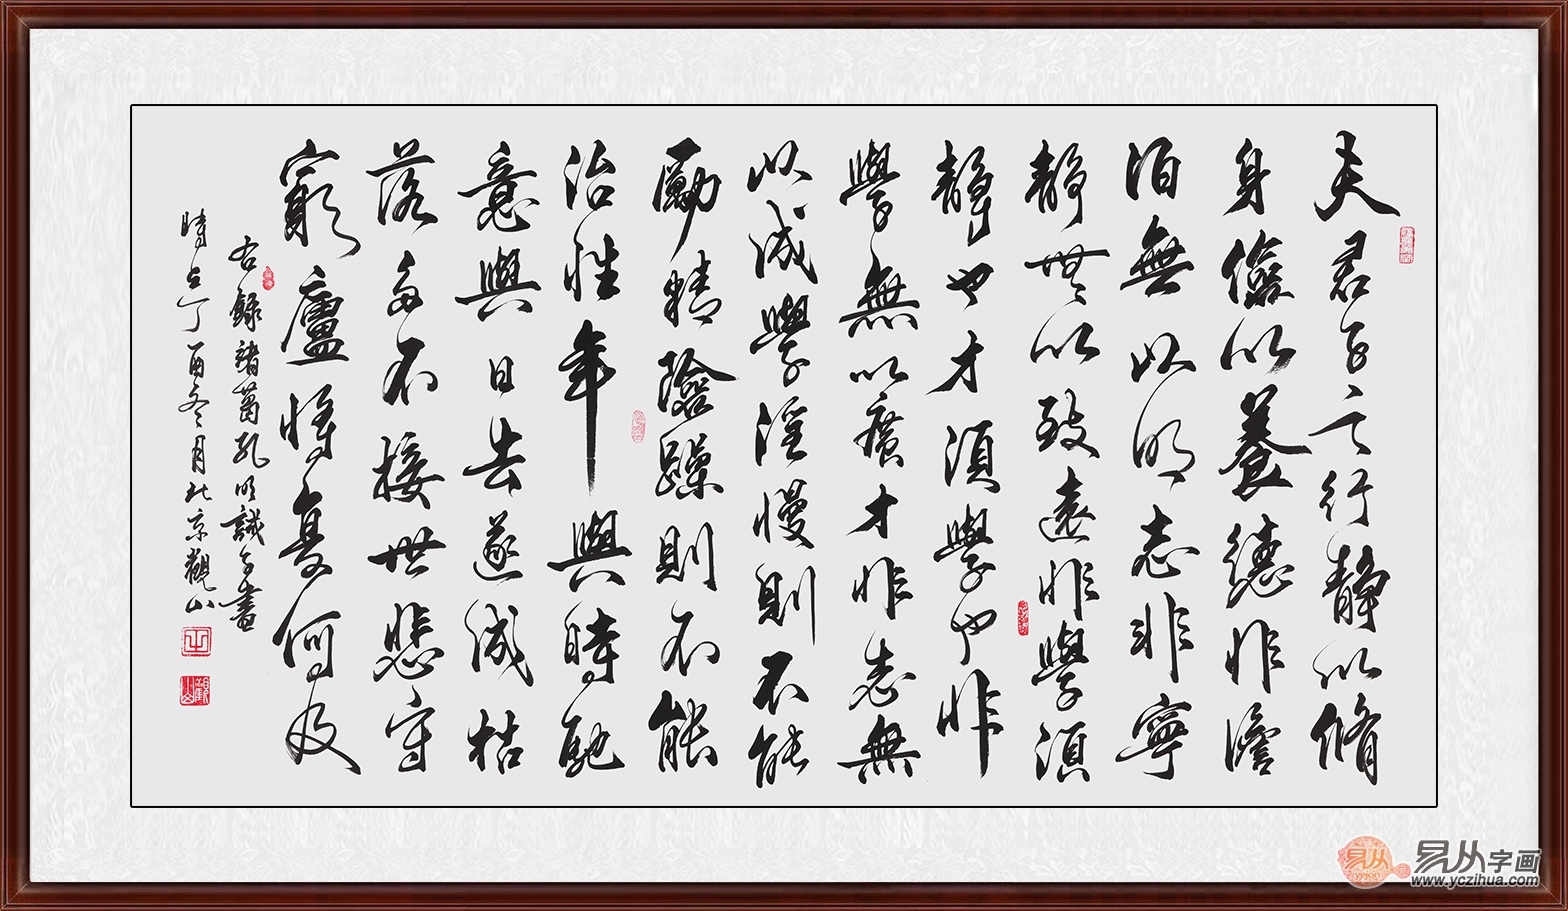 夫君子之行静以脩
身儉以養德非澹
泊無以明志非寧
静無以致遠非學須
靜也才須學也非
學無以廣才非志無
以成學淫慢則不能
勵精險躁則不能
治性年與時馳
意與日去遂成枯
落多不接世悲守
窮廬將復何及
右錄諸葛孔明誡子書
時在丁酉冬月北京觀山
易从
易从字画
www.yczihua.com